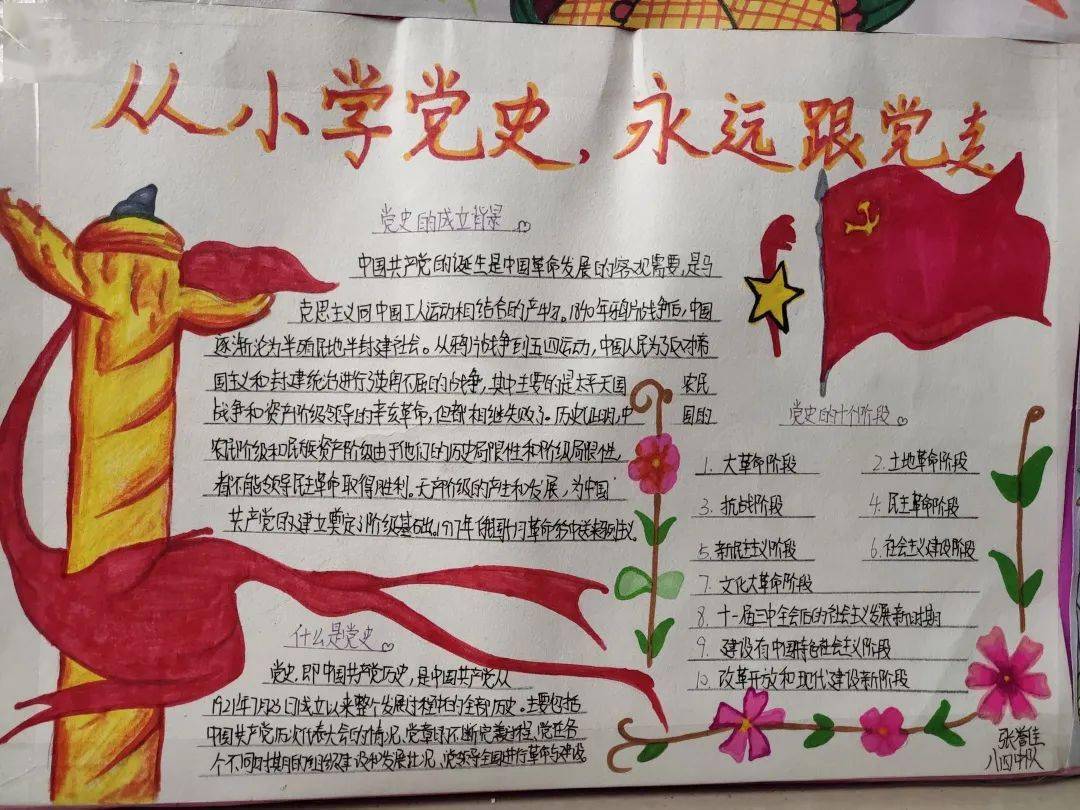 从小学党史，永远跟党走
党史的成立背景
中国共产党的诞生是中国革命发展的客观需要，是马
克思主义同中国工人运动相结合的产物。1840年鸦片战争后，中国
逐渐沦为半殖民地半封建社会。从鸦片战争到五四运动，中国人民为了反对帝
国主义和封建统治进行了英勇不屈的战争，其中主要的是太平天国 农民
战争和资产阶级领导的辛亥革命，但都相继失败了。历史证明，中 国的
农民阶级和民族资产阶级由于他们的历史局限性和阶级局限性，
都不能领导民主革命取得胜利。无产阶级的产生和发展，为中国
共产党的建立奠定了阶级基础。1917年俄国十月革命给中送来列主义。
什么是党史
党史，即中国共产党历史，是中国共产党从
1921年7月23日成立以来整个发展过程的全部历史。主要包括
中国共产党历次代表大会的情况、党章的不断完善过程、党在各
个不同时期的组织建设和发展状况、党领导全国进行革命与建设。
党史的十个阶段
1. 大革命阶段 2. 土地革命阶段
3. 抗战阶段 4. 民主革命阶段
5. 新民主主义阶段 6. 社会主义建设阶段
7. 文化大革命阶段
8. 十一届三中全会后的社会主义发展新时期
9. 建设有中国特色社会主义阶段
10. 改革开放和现代建设新阶段
张誉佳
八四中队